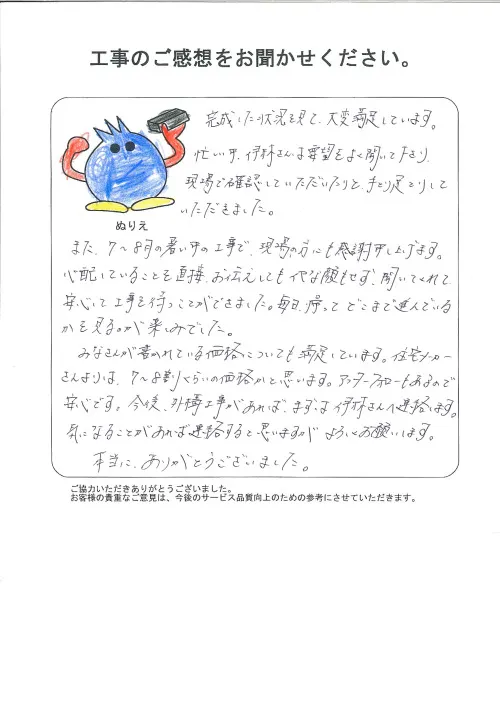 工事のご感想をお聞かせください。
完成した状況を見て、大変満足しています。
忙い中、伊林さんは要望をよく聞いて下さり、
現場で確認していただいたりと、手とり足とりして
いただきました。
ぬりえ
また、7〜8月の暑い中の工事で、現場の方にも感謝申し上げます。
心配していることを直接、お伝えしてもイヤな顔もせず、聞いてくれて、
安心して工事を待つことができました。毎日、帰って どこまで進んでいる
かを見るのが楽しみでした。
みなさんが書かれている価格についても満足しています。住宅メーカー
さんよりは、7〜8割くらいの価格かと思います。アフターフォローもあるので
安心です。今後、外構工事があれば、まずは伊林さんへ連絡します。
気になることがあれば連絡すると思いますが よろしくお願いします。
本当に、ありがとうございました。
ご協力いただきありがとうございました。
お客様の貴重なご意見は、今後のサービス品質向上のための参考にさせていただきます。